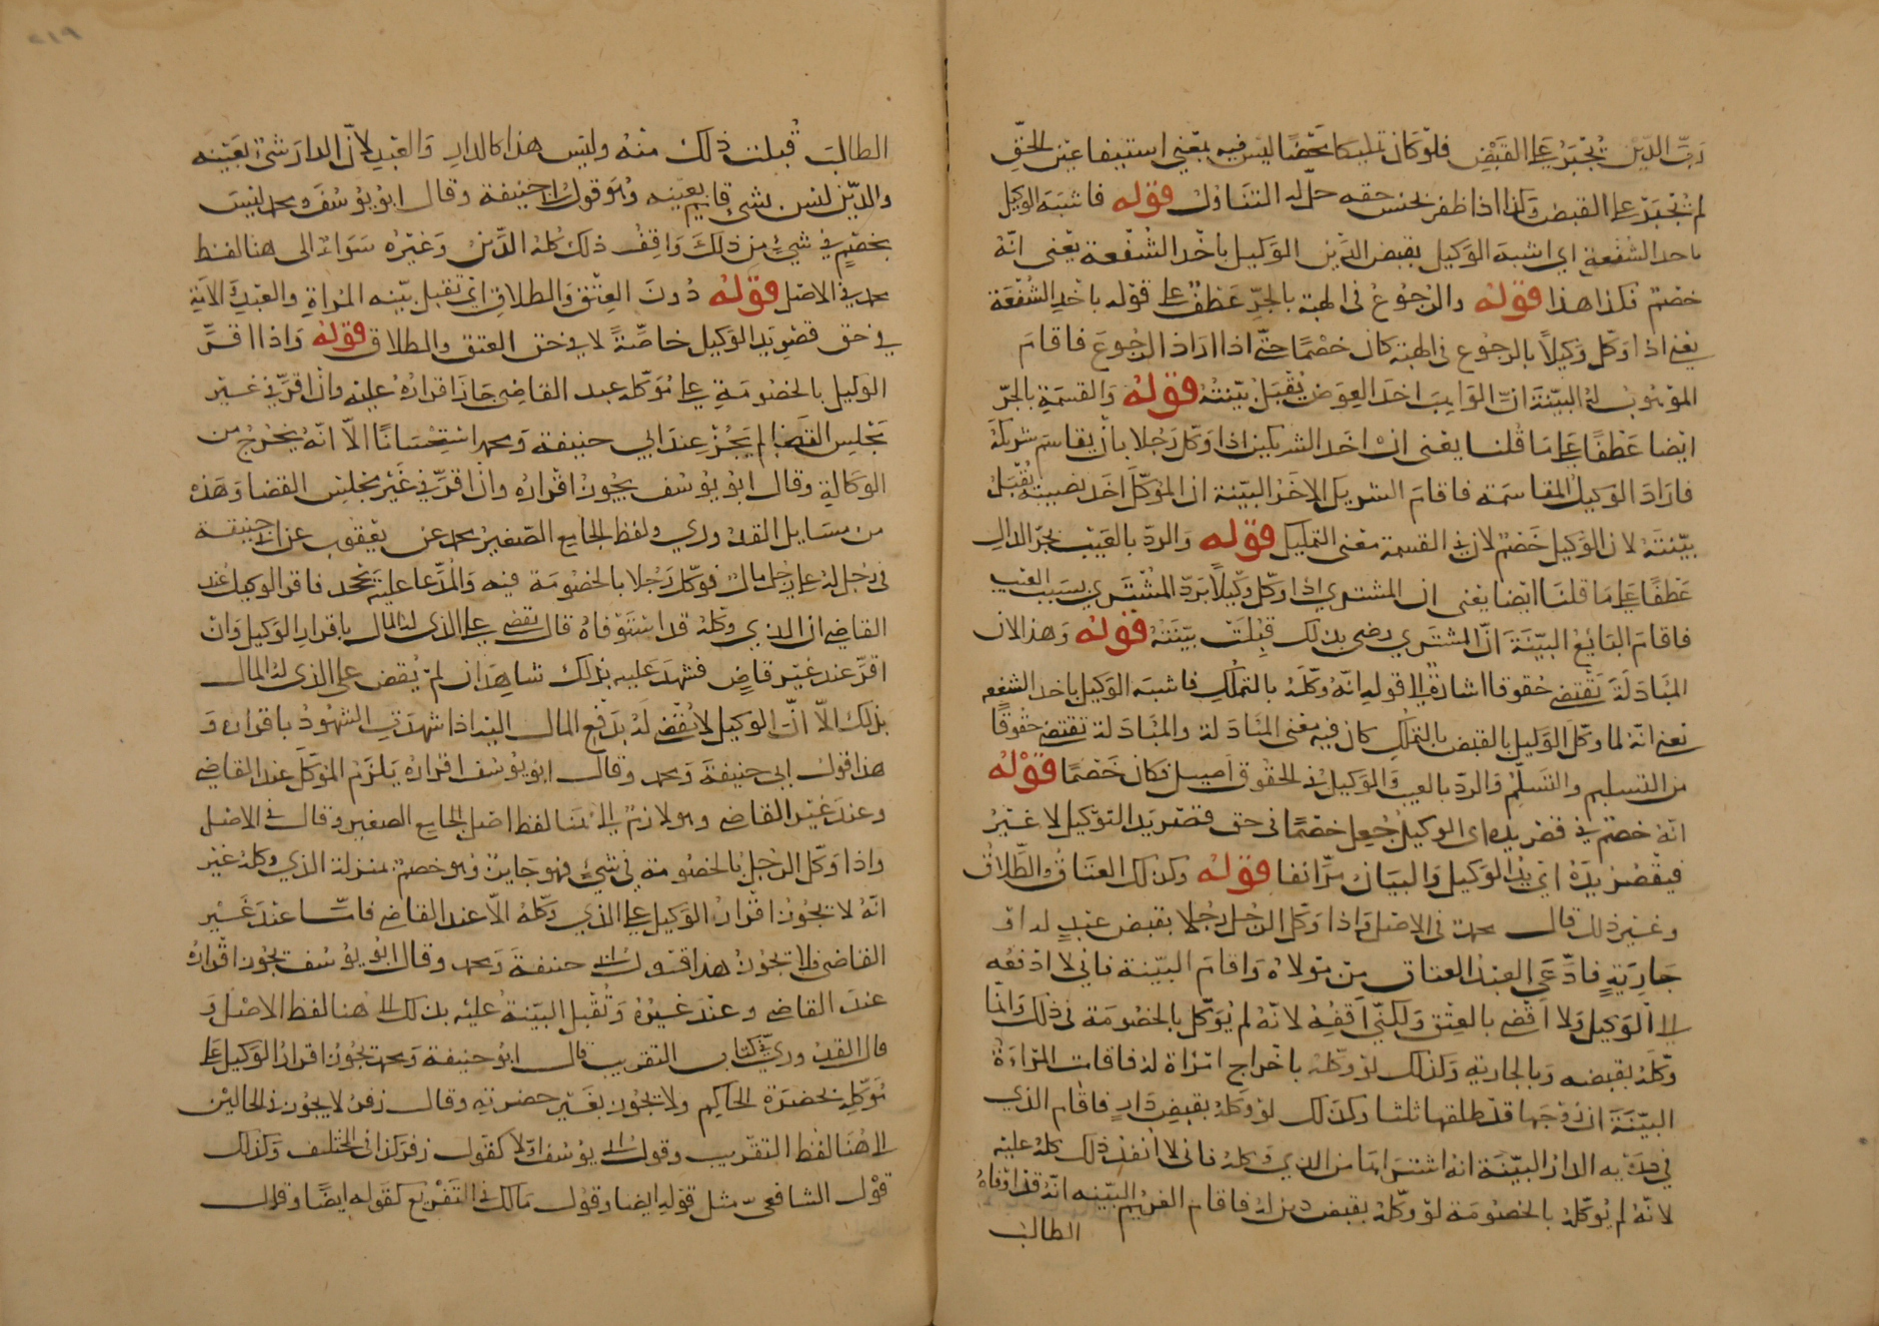 رب الدين يجبر على القبض فلو كان تمليكا محضا ليس فيه بمعنى استيفا عين الحق
لم يجبر على القبض وكذا اذا ظفر بجنس حقه حل له التناول قوله فاشبه الوكيل
باخد الشفعة اي اشبه الوكيل بقبض الدين الوكيل باخد الشفعة يعني انه
خصم فكذا هذا قوله والرجوع في الهبة بالجر عطف على قوله باخد الشفعة
يعني اذا وكل وكيلا بالرجوع في الهبة كان خصما حتى اذا اراد الرجوع فاقام
الموهوب له البينة ان الواهب اخد العوض يقبل بينته قوله والقسمة بالجر
ايضا عطفا على ما قلنا يعني ان احد الشريكين اذا وكل رجلا بان يقاسم شريكه
فاراد الوكيل المقاسمة فاقام الشريك الاخر البينة ان الموكل اخد نصيبه يقبل
بينته لان الوكيل خصم لان في القسمة معنى التمليك قوله والرد بالعيب بجر الدال
عطفا على ما قلنا ايضا يعني ان المشتري اذا وكل وكيلا برد المشترى بسبب العيب
فاقام البايع البينة ان المشتري رضي بذلك قبلت بينته قوله وهذا لان
المبادلة تقتضي حقوقا اشارة الى قوله انه وكله بالتملك فاشبه الوكيل باخد الشفعه
يعني انه لما وكل الوكيل بالقبض بالتملك كان فيه معنى المبادلة والمبادلة تقتضي حقوقا
من التسليم والتسلم والرد بالعيب والوكيل في الحقوق اصيل فكان خصما قوله
انه خصم في قصر يده اى الوكيل جعل خصما في حق قصر يد التوكيل لا غير
فيقصر يده اي يد الوكيل والبيان مر انفا قوله وكذلك العتاق والطلاق
وغير ذلك قال محمد في الاصل واذا وكل الرجل رجلا بقبض عبد له او
جارية فادعى العبد العتاق من مولاه واقام البينة فاني لا ادفعه
الى الوكيل ولا اقضي بالعتق ولكني اقفه لانه لم يوكل بالخصومة في ذلك وانما
وكله بقبضه وبالجارية وكذلك لو وكله باخراج امراة له فاقامت المراءة
البينة ان زوجها قد طلقها ثلثا وكذلك لو وكله بقبض دار فاقام الذي
في يديه الدار البينة انه اشتراها من الذي وكله فاني لا انفذ ذلك كله عليه
لانه لم يوكله بالخصومة لو وكله بقبض دين له فاقام الغريم البينه انه قد اوفاه
الطالب
الطالب قبلت ذلك منه وليس هذا كالدار والعبد لان الدار شئ بعينه
والدين ليس بشي قايم بعينه وهو قول ابي حنيفة وقال ابو يوسف ومحمد ليس
بخصم في شئ من ذلك واقف ذلك كله الدين وغيره سواء الى هنا لفظ
محمد في الاصل قوله دون العتق والطلاق اي تقبل بينه المراة والعبد والامة
في حق قصر يد الوكيل خاصة لا في حق العتق والطلاق قوله واذا اقر
الوكيل بالخصومة على موكله عند القاضي جاز اقراره عليه وان اقر في غير
مجلس القضا لم يجز عند ابي حنيفة ومحمد استحسانا الا انه يخرج من
الوكالة وقال ابو يوسف يجوز اقراره وان اقر في غير مجلس القضا وهذه
من مسايل القدوري ولفظ الجامع الصغير محمد عن يعقوب عن ابي حنيفة
في رجل له على رجل مال فوكل رجلا بالخصومة فيه والمدعا عليه يجحد فاقر الوكيل عند
القاضي ان الذي وكله قد استوفاه قال يقضي على الذي له المال باقرار الوكيل وان
اقر عند غير قاض فشهد عليه بذلك شاهدان لم يقض على الذي له المال
بذلك الا ان الوكيل لا يقضى له بدفع المال اليه اذا شهدت الشهود باقراره و
هذا قول ابي حنيفة ومحمد وقال ابو يوسف اقراره يلزم الموكل عند القاضي
وعند غير القاضي وهو لازم الى هنا لفظ اصل الجامع الصغير وقال في الاصل
واذا وكل الرجل بالخصومة في شئ فهو جايز وهو خصم بمنزلة الذي وكله غير
انه لا يجوز اقرار الوكيل على الذي وكله الا عند القاضي فاما عند غير
القاضي فلا يجوز هذا قول ابي حنيفة ومحمد وقال ابو يوسف يجوز اقراره
عند القاضي وعند غيره وتقبل البينة عليه بذلك الى هنا لفظ الاصل و
قال القدوري في كتاب التقريب قال ابو حنيفة ومحمد يجوز اقرار الوكيل على
موكله بحضرة الحاكم ولا يجوز بغير حضرته وقال زفر لا يجوز في الحالين
الى هنا لفظ التقريب وقول ابي يوسف اولا كقول زفر كذا في المختلف وكذلك
قول الشافعي مثل قوله ايضا وقول مالك في التفريع كقوله ايضا وقال